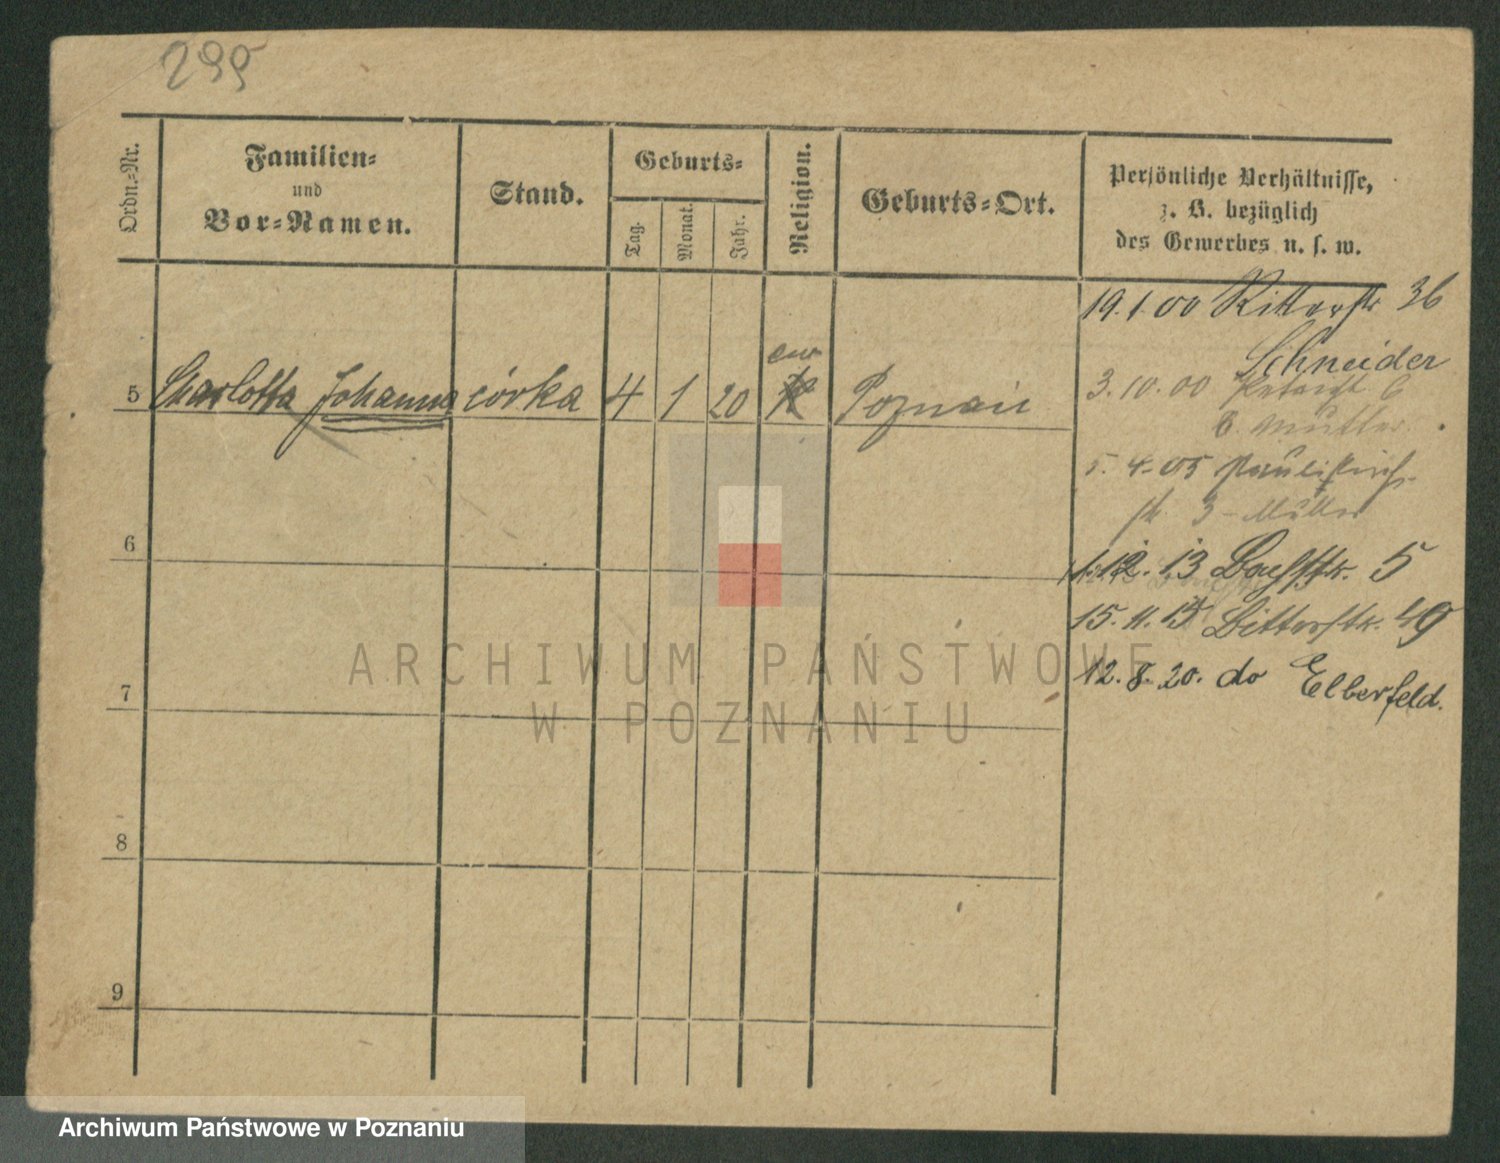 299
Ordn.-Nr.
Familien-
und
Vor-Namen.
Stand.
Geburts-
Tag.
Monat.
Jahr.
Religion.
Geburts-Ort.
Persönliche Verhältnisse,
z. B. bezüglich
des Gewerbes u. s. w.
19.1.00 Ritterstr 36
Schneider
3.10.00
b. Mutter
5 Charlotta Johanna córka 4 1 20 ew Poznań
5.4.05 Paulikirch-
str. 3 - Müller
6
1.12.13 5
15.11.15 Bitterstr. 49
7
12.8.20. do Elberfeld.
8
9
ARCHIWUM PAŃSTWOWE
W POZNANIU
Archiwum Państwowe w Poznaniu